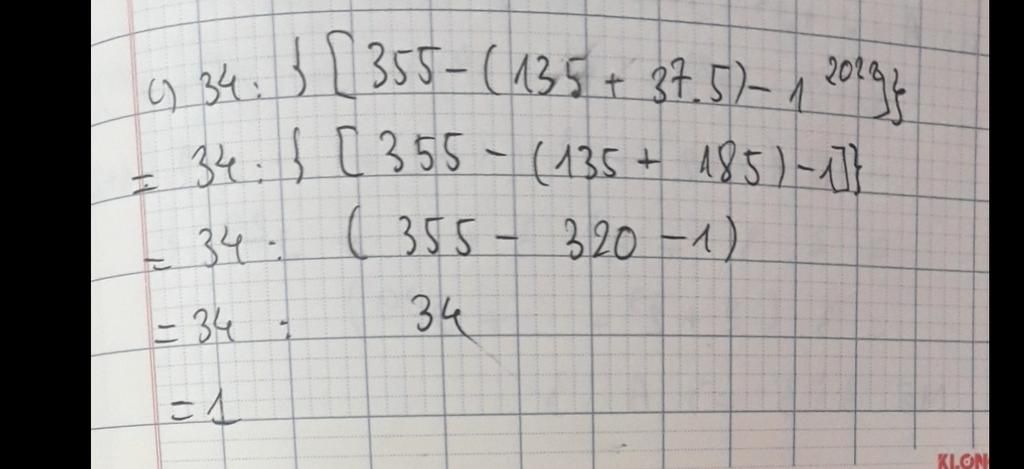 c) 34 : } [ 355 - ( 135 + 37.5) - 1^2023]}
= 34 : } [ 355 - (135 + 185) - 1]}
= 34 : ( 355 - 320 - 1)
= 34 : 34
= 1
KLON